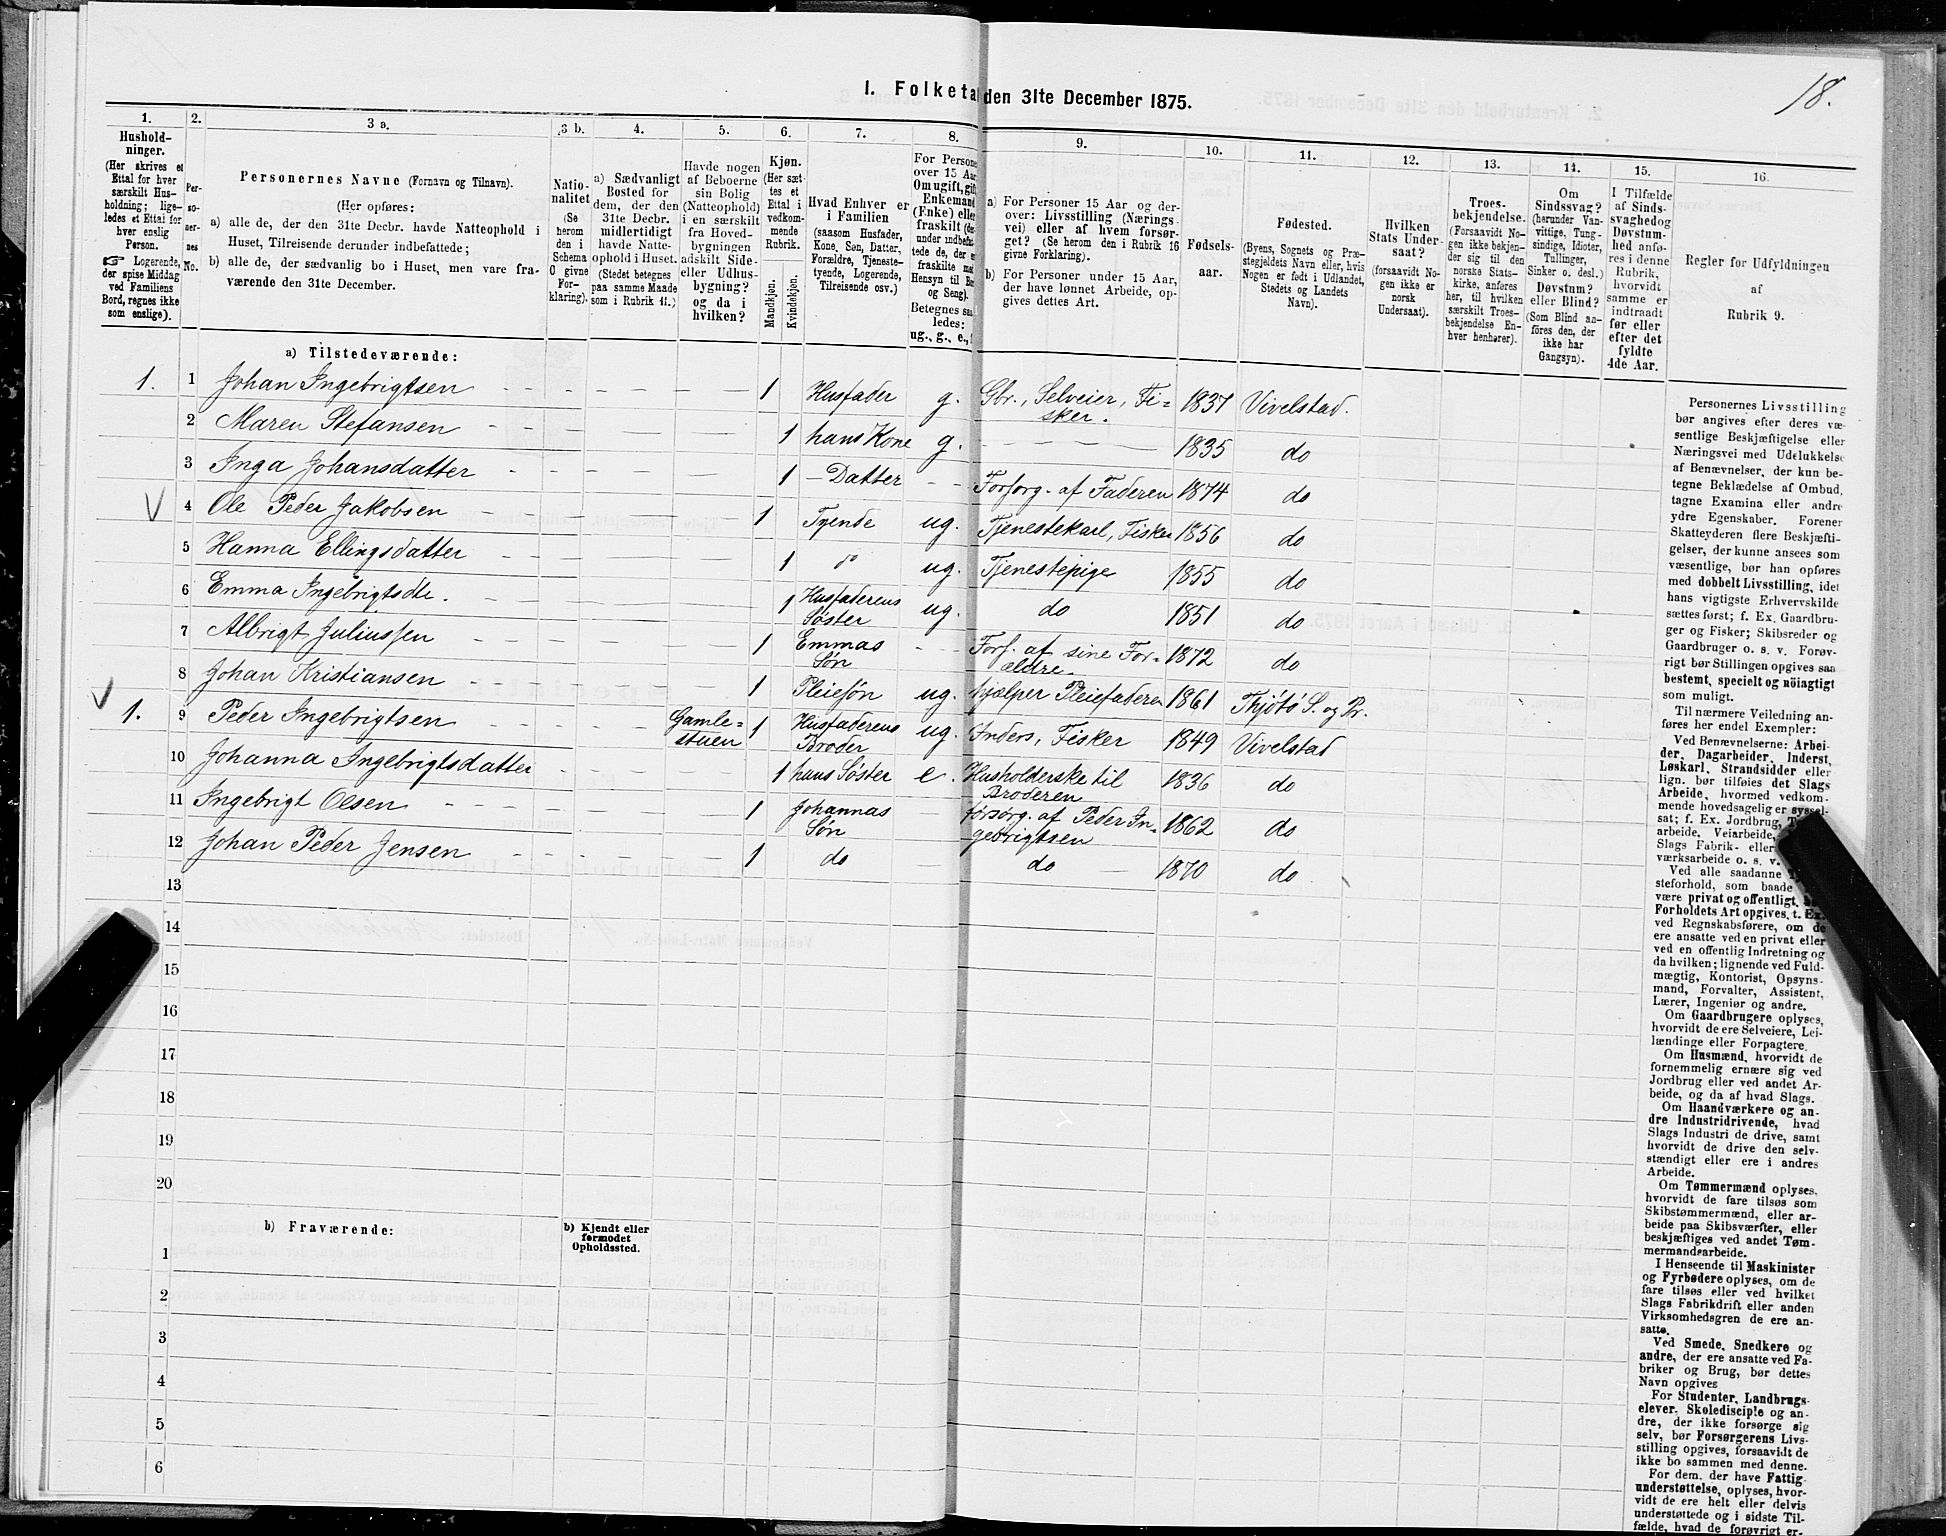 18.
I. Folketal den 31te December 1875.
1. 2. 3 a. 3 b. 4. 5. 6. 7. 8. 9. 10. 11. 12. 13. 14. 15. 16.
Hushold-
ninger.
(Her skrives et
Ettal for hver
særskilt Hus-
holdning; lige-
ledes et Ettal for
hver enslig
Person.
☞ Logerende,
der spise Middag
ved Familiens
Bord, regnes ikke
som enslige).
Per-
so-
ner-
nes
No.
Personernes Navne (Fornavn og Tilnavn).
(Her opføres:
a) alle de, der den 31te Decbr. havde Natteophold i
Huset, Tilreisende derunder indbefattede;
b) alle de, der sædvanlig bo i Huset, men vare fra-
værende den 31te December.
Natio-
nalitet
(Se
herom
den i
Schema
O givne
For-
klaring).
a) Sædvanligt
Bosted for
dem, der den
31te Decbr.
midlertidigt
havde Natte-
ophold i Huset.
(Stedet betegnes
paa samme Maade
som i Rubrik 11.)
Havde nogen
af Beboerne
sin Bolig
(Natteophold)
i en særskilt
fra Hoved-
bygningen
adskilt Side-
eller Udhus-
bygning?
og da i
hvilken?
Kjøn.
(Her sæt-
tes et
Ettal i
vedkom-
mende
Rubrik.
Mandkjøn.
Kvindekjøn.
Hvad Enhver er
i Familien
(saasom Husfader,
Kone, Søn, Datter,
Forældre, Tjeneste-
tyende, Logerende,
Tilreisende osv.)
For Persone
over 15 Aar
Om ugift, gift
Enkemand
(Enke) eller
fraskilt (der-
under indbefat-
tede de, der er
fraskilte med
Hensyn til Bord
og Seng).
Betegnes saa-
ledes:
ug., g., e.,
a) For Personer 15 Aar og der-
over: Livsstilling (Nærings-
vei) eller af hvem forsør-
get? (Se herom den i Rubrik 16
givne Forklaring).
b) For Personer under 15 Aar,
der have lønnet Arbeide, op-
gives dettes Art.
Fødsels-
aar.
Fødested.
(Byens, Sognets og Præ-
stegjeldets Navn eller, hvis
Nogen er født i Udlandet,
Stedets og Landets
Navn).
Hvilken
Stats Under-
saat?
(forsaavidt No-
gen ikke er
norsk
Undersaat).
Troes-
bekjendelse.
(Forsaavidt No-
gen ikke bekjen-
der sig til den
norske Stats-
kirke, anføres
her, til hvilken
særskilt Troes-
bekjendelse En-
hver henhører).
Om
Sindssvag?
(herunder Van-
vittige, Tung-
sindige, Idioter,
Tullinger,
Sinker o. desl.)
Døvstum?
eller Blind?
(Som Blind an-
føres den, der
ikke har
Gangsyn).
I Tilfælde
af Sinds-
svaghed og
Døvstum-
hed anfø-
res i denne
Rubrik,
hvorvidt
samme er
indtraadt
før eller
efter det
fyldte
4de Aar.
Regler for Udfyldningen
af
Rubrik 9.
a) Tilstedeværende:
1. 1 Johan Ingebrigtsen 1 Husfader g. Gbr., Selveier, Fi- 1837 Vivelstad.
sker.
2 Maren Stefansen 1 hans Kone g. 1835 do
3 Inga Johansdatter 1 Datter Forsorg. af Faderen 1874 do
4 Ole Peder Jakobsen 1 Tyende ug. Tjenestekarl, Fisker 1856 do
5 Hanna Ellingsdatter 1 do ug. Tjenestepige 1855 do
6 Emma Ingebrigtsdtr. 1 Husfaderens ug. do 1851 do
Søster
7 Albrigt Juliussen 1 Emmas Forf. af sine For- 1872 do
Søn ældre.
8 Johan Kristiansen 1 Pleiesøn ug. hjælper Pleiefaderen 1861 Thjøtø S. og Pr.
1. 9 Peder Ingebrigtsen Gamle- 1 Husfaderens ug. Inders, Fisker 1849 Vivelstad
stuen Broder
10 Johanna Ingebrigtsdatter 1 hans Søster e. Husholderske til 1836 do
Broderen
11 Ingebrigt Olsen 1 Johannas forsørg. af Peder In- 1862 do
Søn gebrigtsen
12 Johan Peder Jensen 1 do do 1870 do
13
14
15
16
17
18
19
20
b) Fraværende: b) Kjendt eller
formodet
Opholdssted.
1
2
3
4
5
6
Personernes Livsstilling
bør angives efter deres væ-
sentlige Beskjæftigelse eller
Næringsvei med Udelukkelse
af Benævnelser, der kun be-
tegne Beklædelse af Ombud,
tagne Examina eller andre
ydre Egenskaber. Forener
Skatteyderen flere Beskjæfti-
gelser, der kunne ansees som
væsentlige, bør han opføres
med dobbelt Livsstilling, idet
hans vigtigste Erhvervskilde
sættes først; f. Ex. Gaardbru-
ger og Fisker; Skibsreder og
Gaardbruger o. s. v. Forøv-
rigt bør Stillingen opgives saa
bestemt, specielt og nøiagtigt
som muligt.
Til nærmere Veiledning an-
føres her endel Exempler:
Ved Benævnelserne: Arbei-
der, Dagarbeider, Inderst,
Løskarl, Strandsidder eller
lign. bør tilføies det Slags
Arbeide, hvormed vedkom-
mende hovedsagelig er syssel-
sat; f. Ex. Jordbrug,
arbeide, Veiarbeide,
Slags Fabrik- eller
værksarbeide o. s. v.
Ved alle saadanne
steforhold, som baade
være privat og offentligt,
Forholdets Art opgives, t. Ex.
ved Regnskabsførere, om de
ere ansatte ved en privat eller
ved en offentlig Indretning og
da hvilken; lignende ved Fuld-
mægtig, Kontorist, Opsyns-
mand, Forvalter, Assistent,
Lærer, Ingeniør og andre.
Om Gaardbrugere oplyses,
hvorvidt de ere Selveiere, Lei-
lændinge eller Forpagtere.
Om Husmænd, hvorvidt de
fornemmelig ernære sig ved
Jordbrug eller ved andet Ar-
beide, og da af hvad Slags.
Om Haandværkere og an-
dre Industridrivende, hvad
Slags Industri de drive, samt
hvorvidt de drive den selv-
stændigt eller ere i andres
Arbeide.
Om Tømmermænd oplyses,
hvorvidt de fare tilsøs som
Skibstømmermænd, eller ar-
beide paa Skibsværfter, eller
beskjæftiges ved andet Tøm-
mermandsarbeide.
I Henseende til Maskinister
og Fyrbødere oplyses, om de
fare tilsøs eller ved hvilket
Slags Fabrikdrift eller anden
Virksomhedsgren de ere an-
satte.
Ved Smede, Snedkere og
andre, der ere ansatte ved Fa-
briker og Brug, bør dettes
Navn opgives
For Studenter, Landbrugs-
elever, Skoledisciple og an-
dre, der ikke forsørge sig
selv, bør Forsørgerens Livs-
stilling opgives, forsaavidt de
ikke bo sammen med denne.
For dem, der have Fattig-
understøttelse, oplyses, hvor-
vidt de ere helt eller delvis
understøttede og i sidste Til-
fælde, hvad de forøvrigt er-